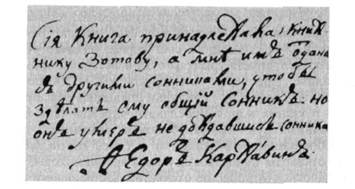 Сія Книга принадлежала Книж-
нику Зотову, а мнѣ имъ отдана
съ другими сонниками, чтобы
здѣлать ему общий Сонникъ. но
онъ умеръ не дождавшись сонника
Ѳедоръ Каржавинъ.